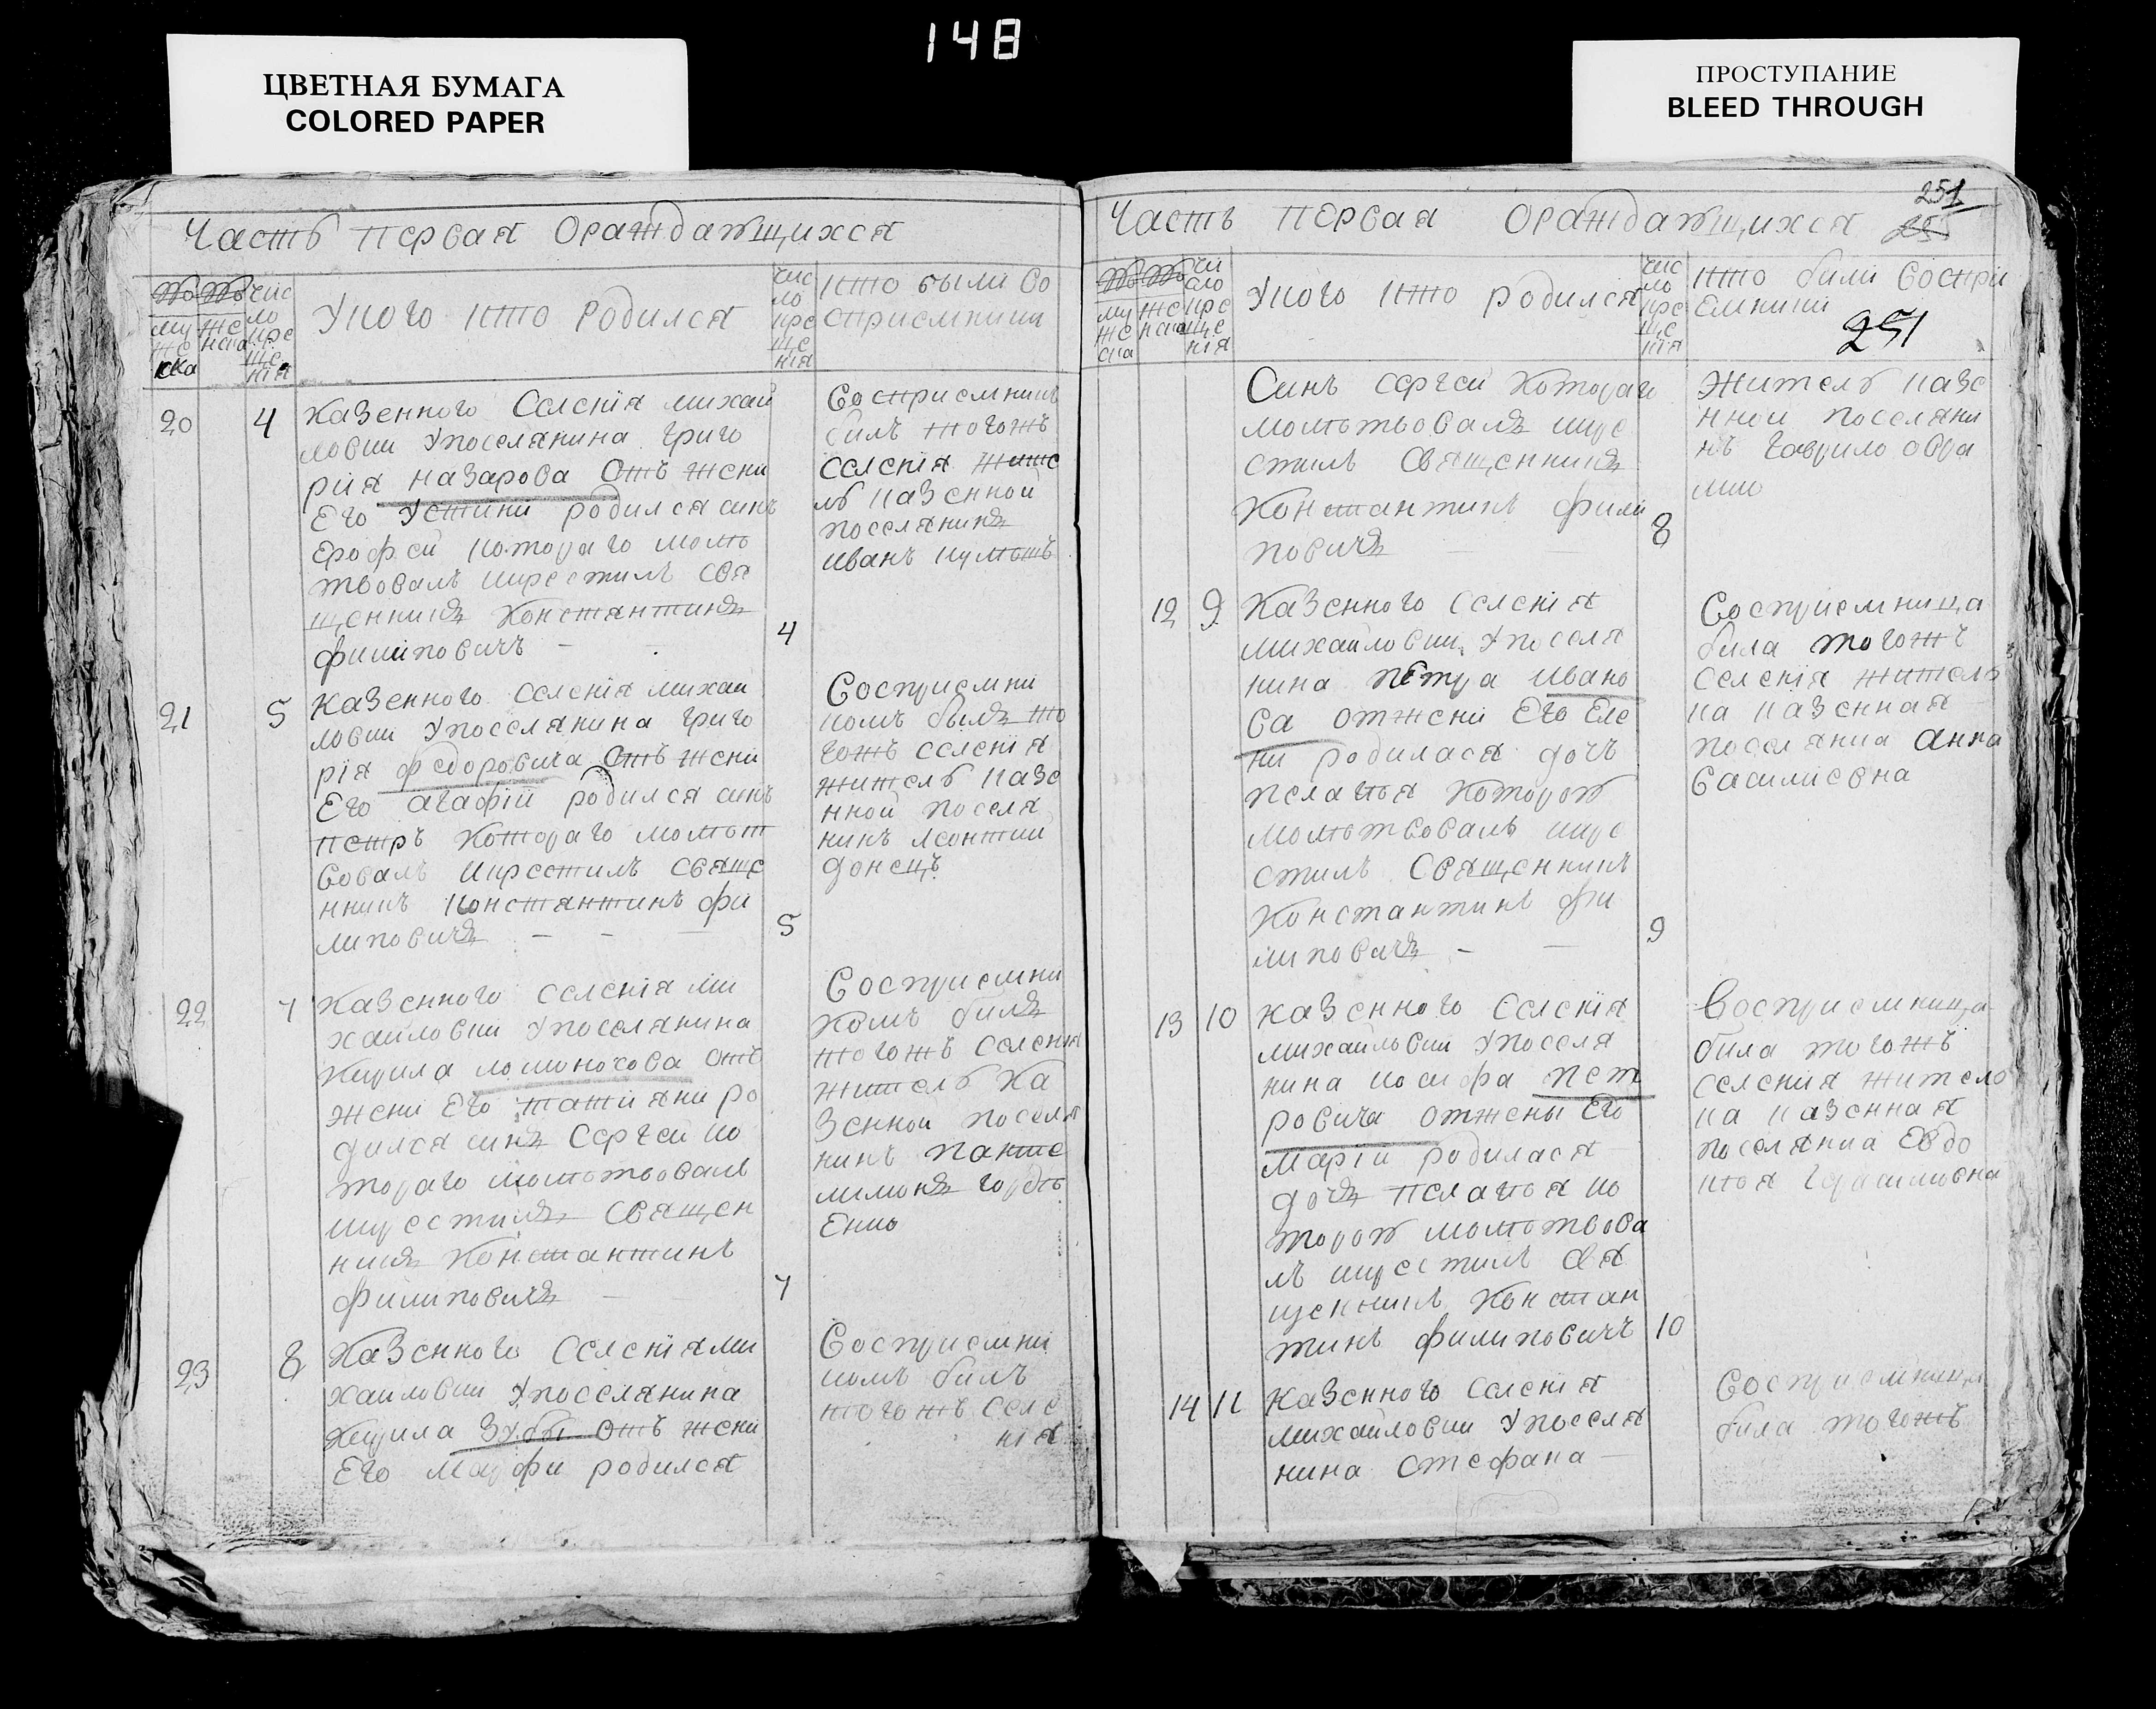 148
ЦВЕТНАЯ БУМАГА
COLORED PAPER
ПРОСТУПАНИЕ
BLEED THROUGH
Часть первая Ораждающихся
му жеска
же нска
чис ло кре ще нія
Укого кто родился
чис ло кре ще нія
кто были во
сприемники
20
4
Казенного Селенія михай
ловки Упоселянина Григо
рия назарова Отъ жени
Его Устини родился синъ
Ерофей котораго молит
твовалъ икрестилъ свя
щенникъ Константинъ
филиповичъ –
4
Восприемникъ
билъ тогожъ
Селенія жите
ль казенной
поселянинъ
иванъ
21
5
Казенного Селенія михай
ловки Упоселянина Григо
рія федоровича Отъ жени
Его агафій родился синъ
петръ Котораго молит
вовалъ икрестилъ свяще
нникъ константинъ фи
липовичъ – – –
5
Восприемни
комъ былъ то
гожъ селенія
житель казе
нной поселя
нинъ леонтий
донецъ
22
7
Казенного Селенія ми
хайловки Упоселянина
Кирила ломоносова отъ
жени Его татіяни ро
дился синъ Сергей ко
тораго молитвовалъ
икрестилъ Священ
никъ Константинъ
филиповичъ –
7
Восприемни
комъ билъ
тогожъ Селения
житель Ка
зенной поселя
нинъ панте
лимонъ горде
Енко
23
8
Казенного Селенія ми
хайловки Упоселянина
Кирила Зуби отъ жени
Его Марфи родился
Восприемни
комъ билъ
тогожъ Селе
нія
Часть первая Ораждающихся
251
му же ска
же нска
чи сло кре ще нія
Укого кто родился
чис ло кре ще нія
кто били Воспри
Емники
251
Синъ Сергей Котораго
молитвовалъ икре
стилъ Священникъ
Константинъ фили
повичъ –
8
Житель казе
нной поселяни
нъ Гаврило
12
9
Казенного Селенія
михайловки Упоселя
нина петра ивано
ва отжени Его Еле
ни родилася дочъ
пелагия Которою
молитвовалъ икре
стилъ Священникъ
Константинъ фи
липовичъ – –
9
Восприемница
била тогожъ
Селенія жителъ
ка казенная
поселянка анна
василиевна
13
10
Казенного Селенія
михайловки Упоселя
нина иосифа пет
ровича отжены Его
Марій родилася
дочъ пелагия ко
торою молитвова
лъ икрестилъ свя
щенникъ Констан
тинъ филиповичъ
10
Восприемница
била тогожъ
селения жителъ
ка казенная
поселянка Евдо
кия Герасимовна
14
11
Казенного Селенія
михайловки Упоселя
нина Стефана –
Восприемница
била тогожъ